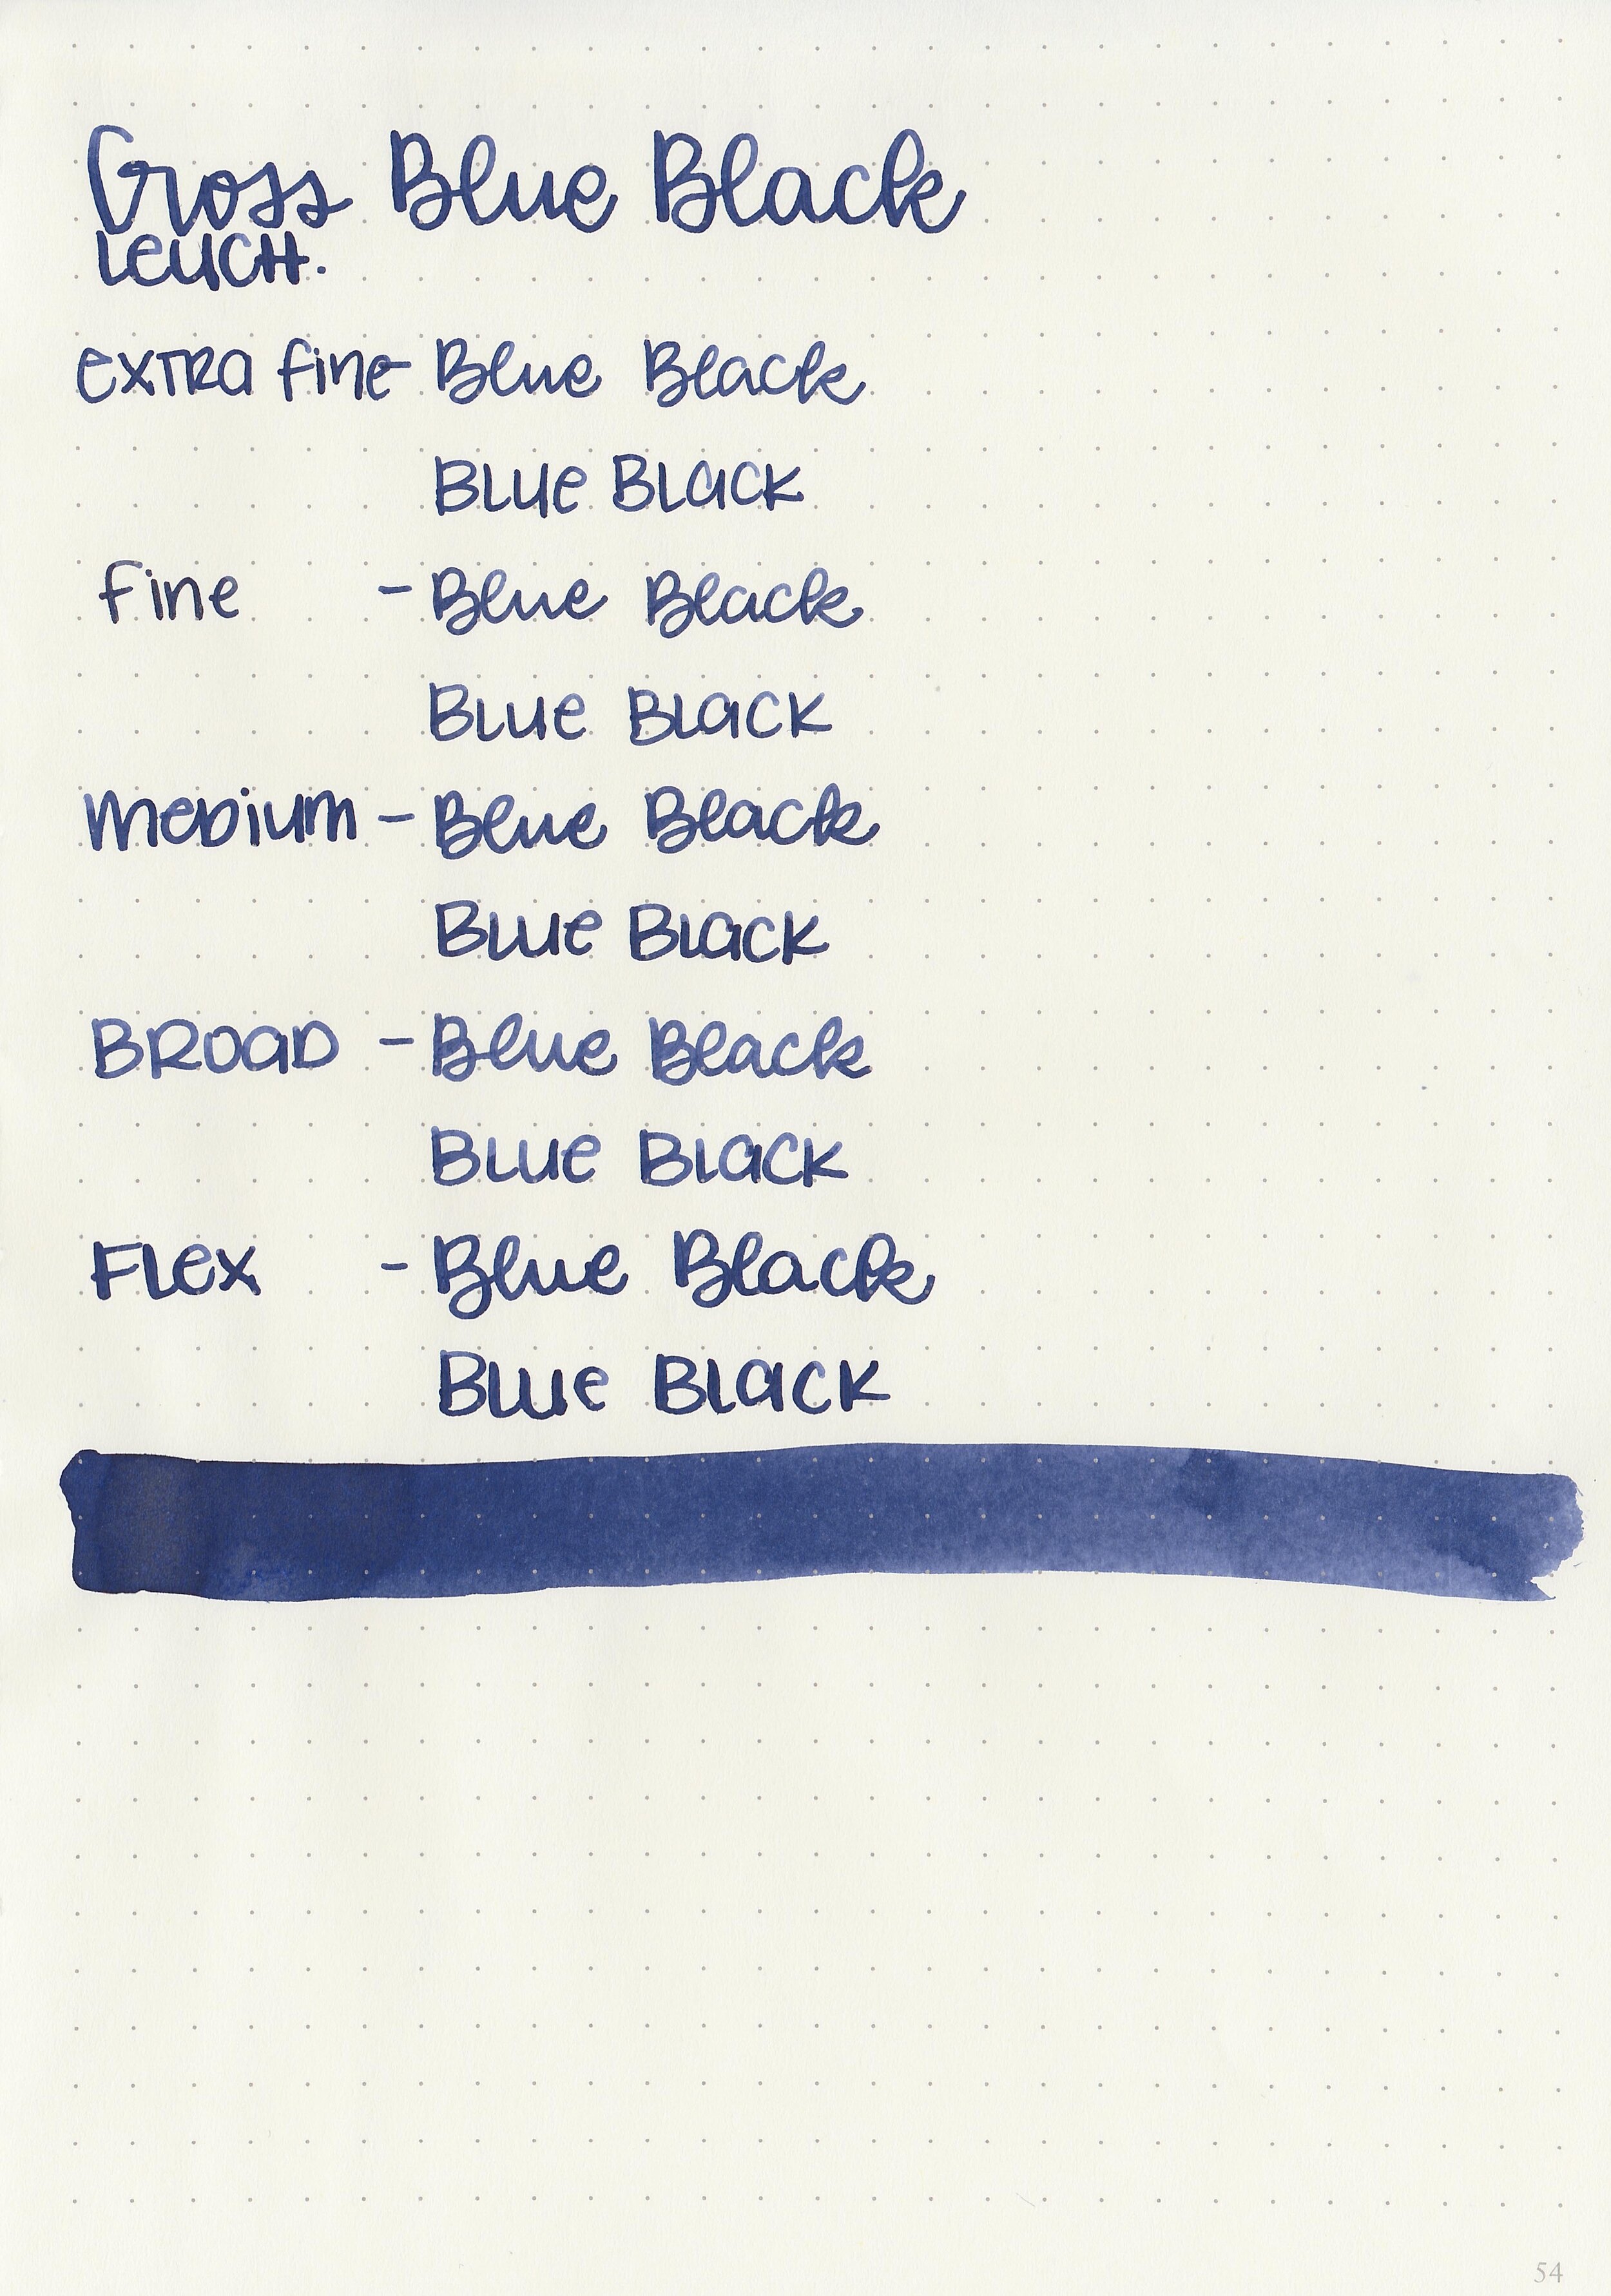 Cross Blue Black
Leuch.
extra fine - Blue Black
Blue Black
fine - Blue Black
Blue Black
Medium - Blue Black
Blue Black
Broad - Blue Black
Blue Black
Flex - Blue Black
Blue Black
54